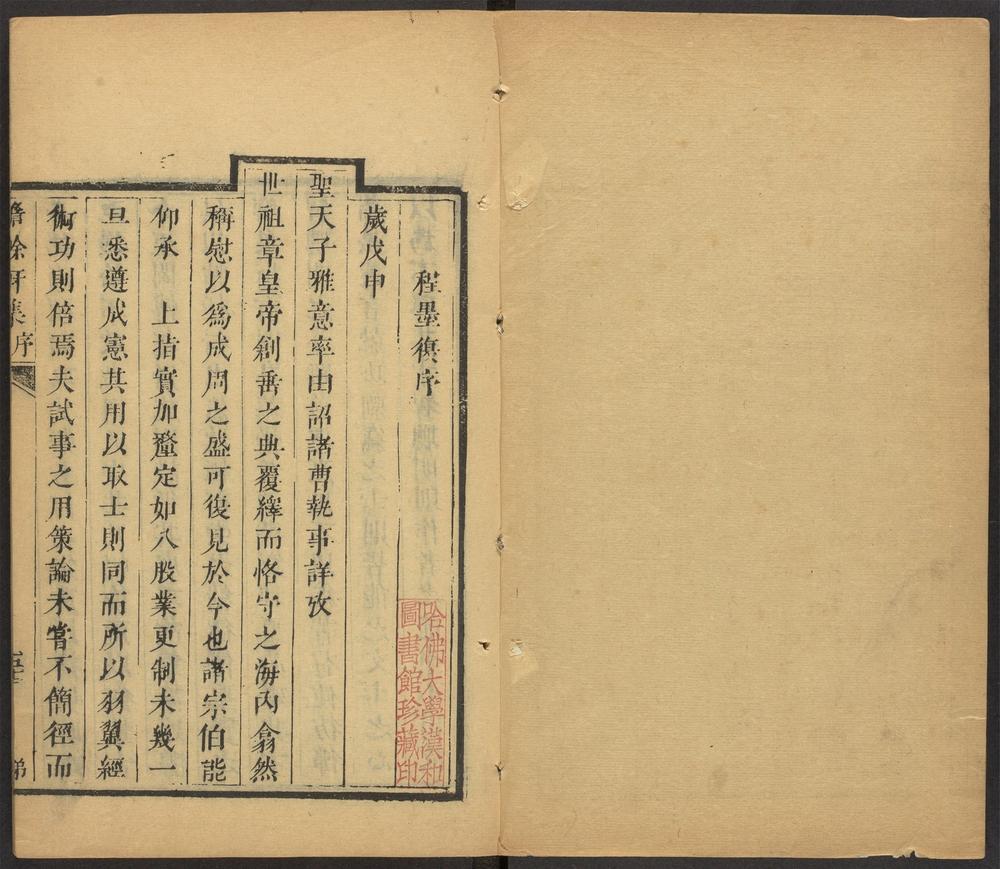 程墨復序
歲戊申
聖天子雅意率由詔諸曹執事詳攷
世祖章皇帝創垂之典覆繹而恪守之海內翕然
稱慰以為成周之盛可復見於今也諸宗伯能
仰承　上指實加釐定如八股業更制未幾一
旦悉遵成憲其用以取士則同而所以羽翼經
術功則倍焉夫試事之用策論未嘗不簡徑而
哈佛大學漢和
圖書館珍藏印
序